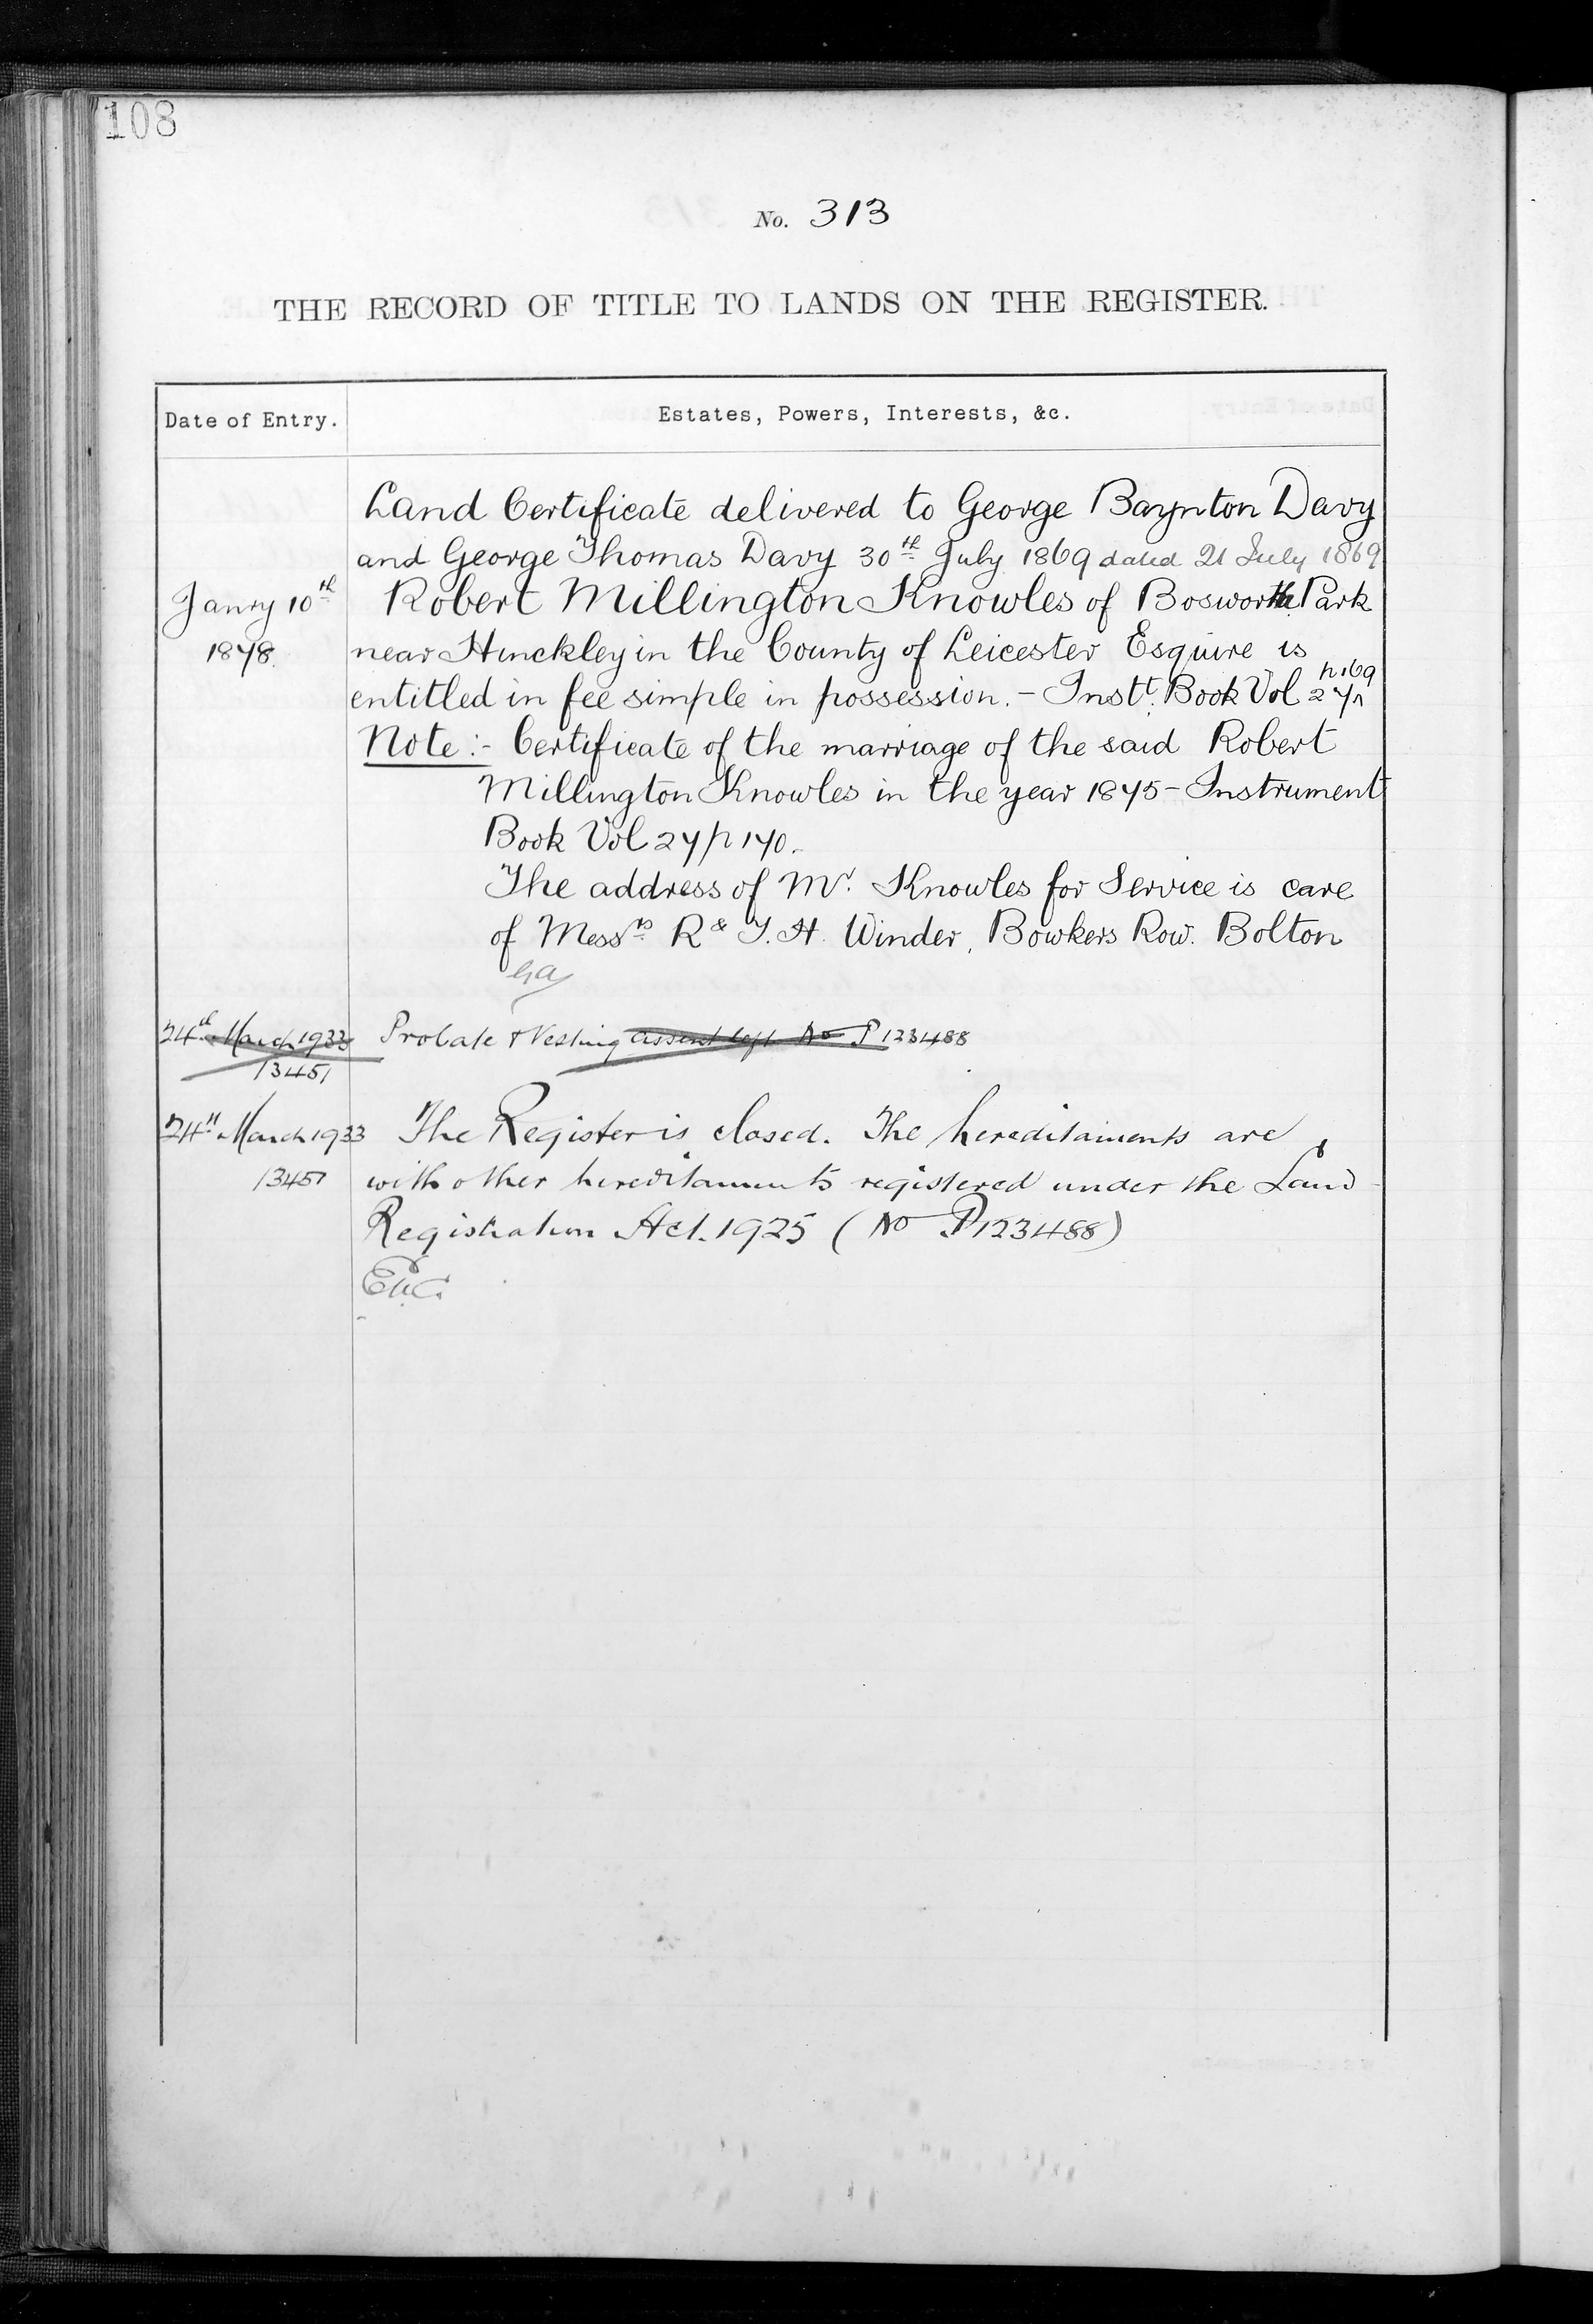 108
No. 313
THE RECORD OF TITLE TO LANDS ON THE REGISTER.
Date of Entry.
Estates, Powers, Interests, &c.
Land Certificate delivered to George Baynton Davy
and George Thomas Davy 30th July 1869 dated 21 July 1869
Janry 10th
1878.
Robert Millington Knowles of Bosworth Park
near Hinckley in the County of Leicester Esquire is
entitled in fee simple in possession. - Instt. Book Vol 27 p 169
Note :- Certificate of the marriage of the said Robert
Millington Knowles in the year 1875 - Instrument
Book Vol 27 p 170.
The address of Mr. Knowles for Service is care
of Messrs R & T. H. Winder, Bowkers Row. Bolton
24th March 1933
13451
Probate & Vesting assent left No P 123488
24th March 1933
13451
The Register is closed. The hereditaments are
with other hereditaments registered under the Land
Registration Act. 1925 (No P123488)